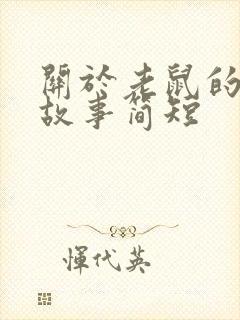 關於老鼠的
故事簡短
惲代英